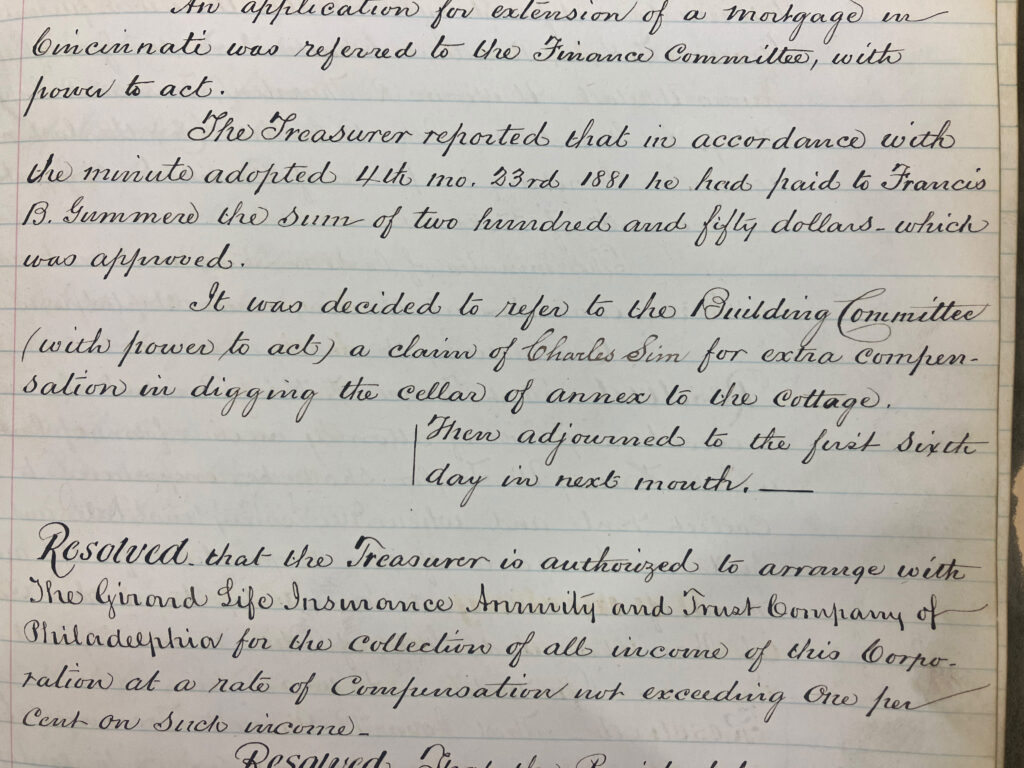 An application for extension of a mortgage in
Cincinnati was referred to the Finance Committee, with
power to act.
The Treasurer reported that in accordance with
the minute adopted 4th mo. 23rd 1881 he had paid to Francis
B. Gummere the sum of two hundred and fifty dollars - which
was approved.
It was decided to refer to the Building Committee
(with power to act) a claim of Charles Sim for extra compen-
sation in digging the cellar of annex to the cottage.
Then adjourned to the first sixth
day in next month. —
Resolved that the Treasurer is authorized to arrange with
The Girard Life Insurance Annuity and Trust Company of
Philadelphia for the collection of all income of this Corpo-
ration at a rate of Compensation not exceeding One per
Cent on such income -
Resolved That the